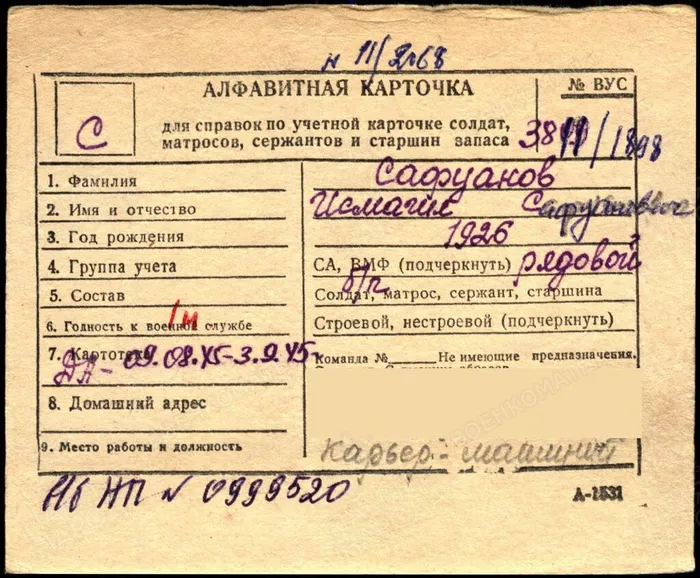 н 11/2168
АЛФАВИТНАЯ КАРТОЧКА
№ ВУС
С
для справок по учетной карточке солдат,
матросов, сержантов и старшин запаса
1. Фамилия
Сафуанов
2. Имя и отчество
Исмагил Сафуанович
3. Год рождения
1926
4. Группа учета
СА, ВМФ (подчеркнуть) рядовой
5. Состав
б/п
Солдат, матрос, сержант, старшина
6. Годность к военной службе
Строевой, нестроевой (подчеркнуть)
7. Картотека
09.08.45-3.9.45
Команда № Не имеющие предназначения.
8. Домашний адрес
9. Место работы и должность
Карьер- машинист
НБ № 0999520
А-1531